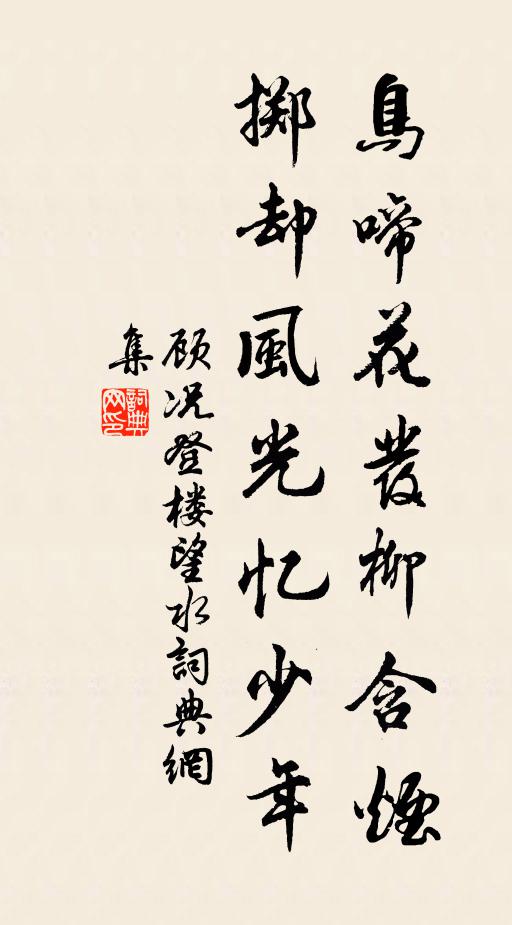 鳥啼花發柳含煙
掷却風光忆少年
顾况登楼望水詞典網
集
詞典网印